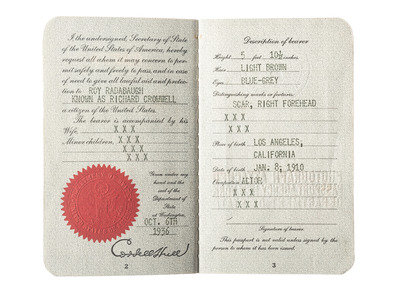 I the undersigned, Secretary of State
of the United States of America, hereby
request all whom it may concern to per-
mit safely and freely to pass, and in case
of need to give all lawful aid and protec-
tion to ROY RADABAUGH
KNOWN AS RICHARD CROMWELL
a citizen of the United States.
The bearer is accompanied by his
Wife, X X X
Minor children, X X X
X X X
X X X
Given under my
hand and the
seal of the
Department of
State
at Washington,
OCT. 6TH
1936
Cordell Hull
2
Description of bearer
Height 5 feet 10½ inches.
Hair LIGHT BROWN
Eyes BLUE-GREY
Distinguishing marks or features:
SCAR, RIGHT FOREHEAD
X X X
X X X
Place of birth LOS ANGELES,
CALIFORNIA
Date of birth JAN. 8, 1910
Occupation ACTOR
X X X
X X X
Signature of bearer.
This passport is not valid unless signed by the
person to whom it has been issued.
3